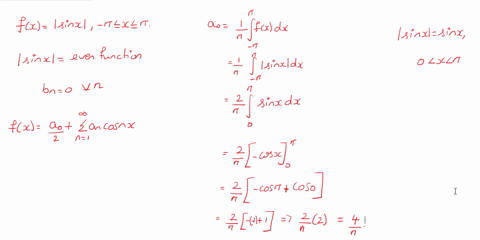 f(x) = |sinx|, -π≤x≤π.
|sinx| = even function
bn=0 ∀n
f(x) = a₀/2 + ∑_{n=1}^{∞} an cosnx
a₀ = 1/π ∫_{-π}^{π} f(x) dx
= 1/π ∫_{-π}^{π} |sinx| dx
= 2/π ∫_{0}^{π} sinx dx
= 2/π [-cosx]_{0}^{π}
= 2/π [-cosπ + cos0]
= 2/π [-(-1)+1] => 2/π (2) = 4/π !
|sinx| = sinx,
0<x<π